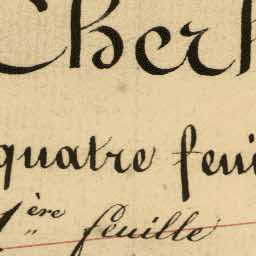 Cherb
quatre feui
1ère feuille